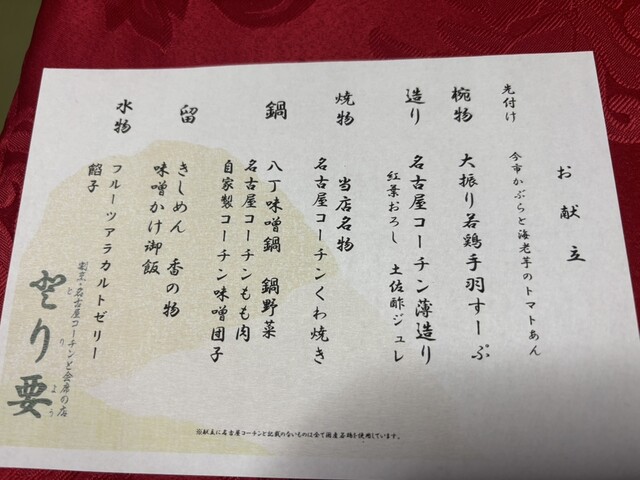 お献立
先付け
今市かぶらと海老芋のトマトあん
椀物
大振り若鶏手羽すーぷ
造り
名古屋コーチン薄造り
紅葉おろし 土佐酢ジュレ
焼物
当店名物
名古屋コーチンくわ焼き
鍋
八丁味噌鍋 鍋野菜
名古屋コーチンもも肉
自家製コーチン味噌団子
留
きしめん 香の物
味噌かけ御飯
水物
フルーツアラカルトゼリー
餡子
割烹・名古屋コーチンと会席の店
とりよう
り要
※献立に名古屋コーチンと記載のないものは全て国産若鶏を使用しています。